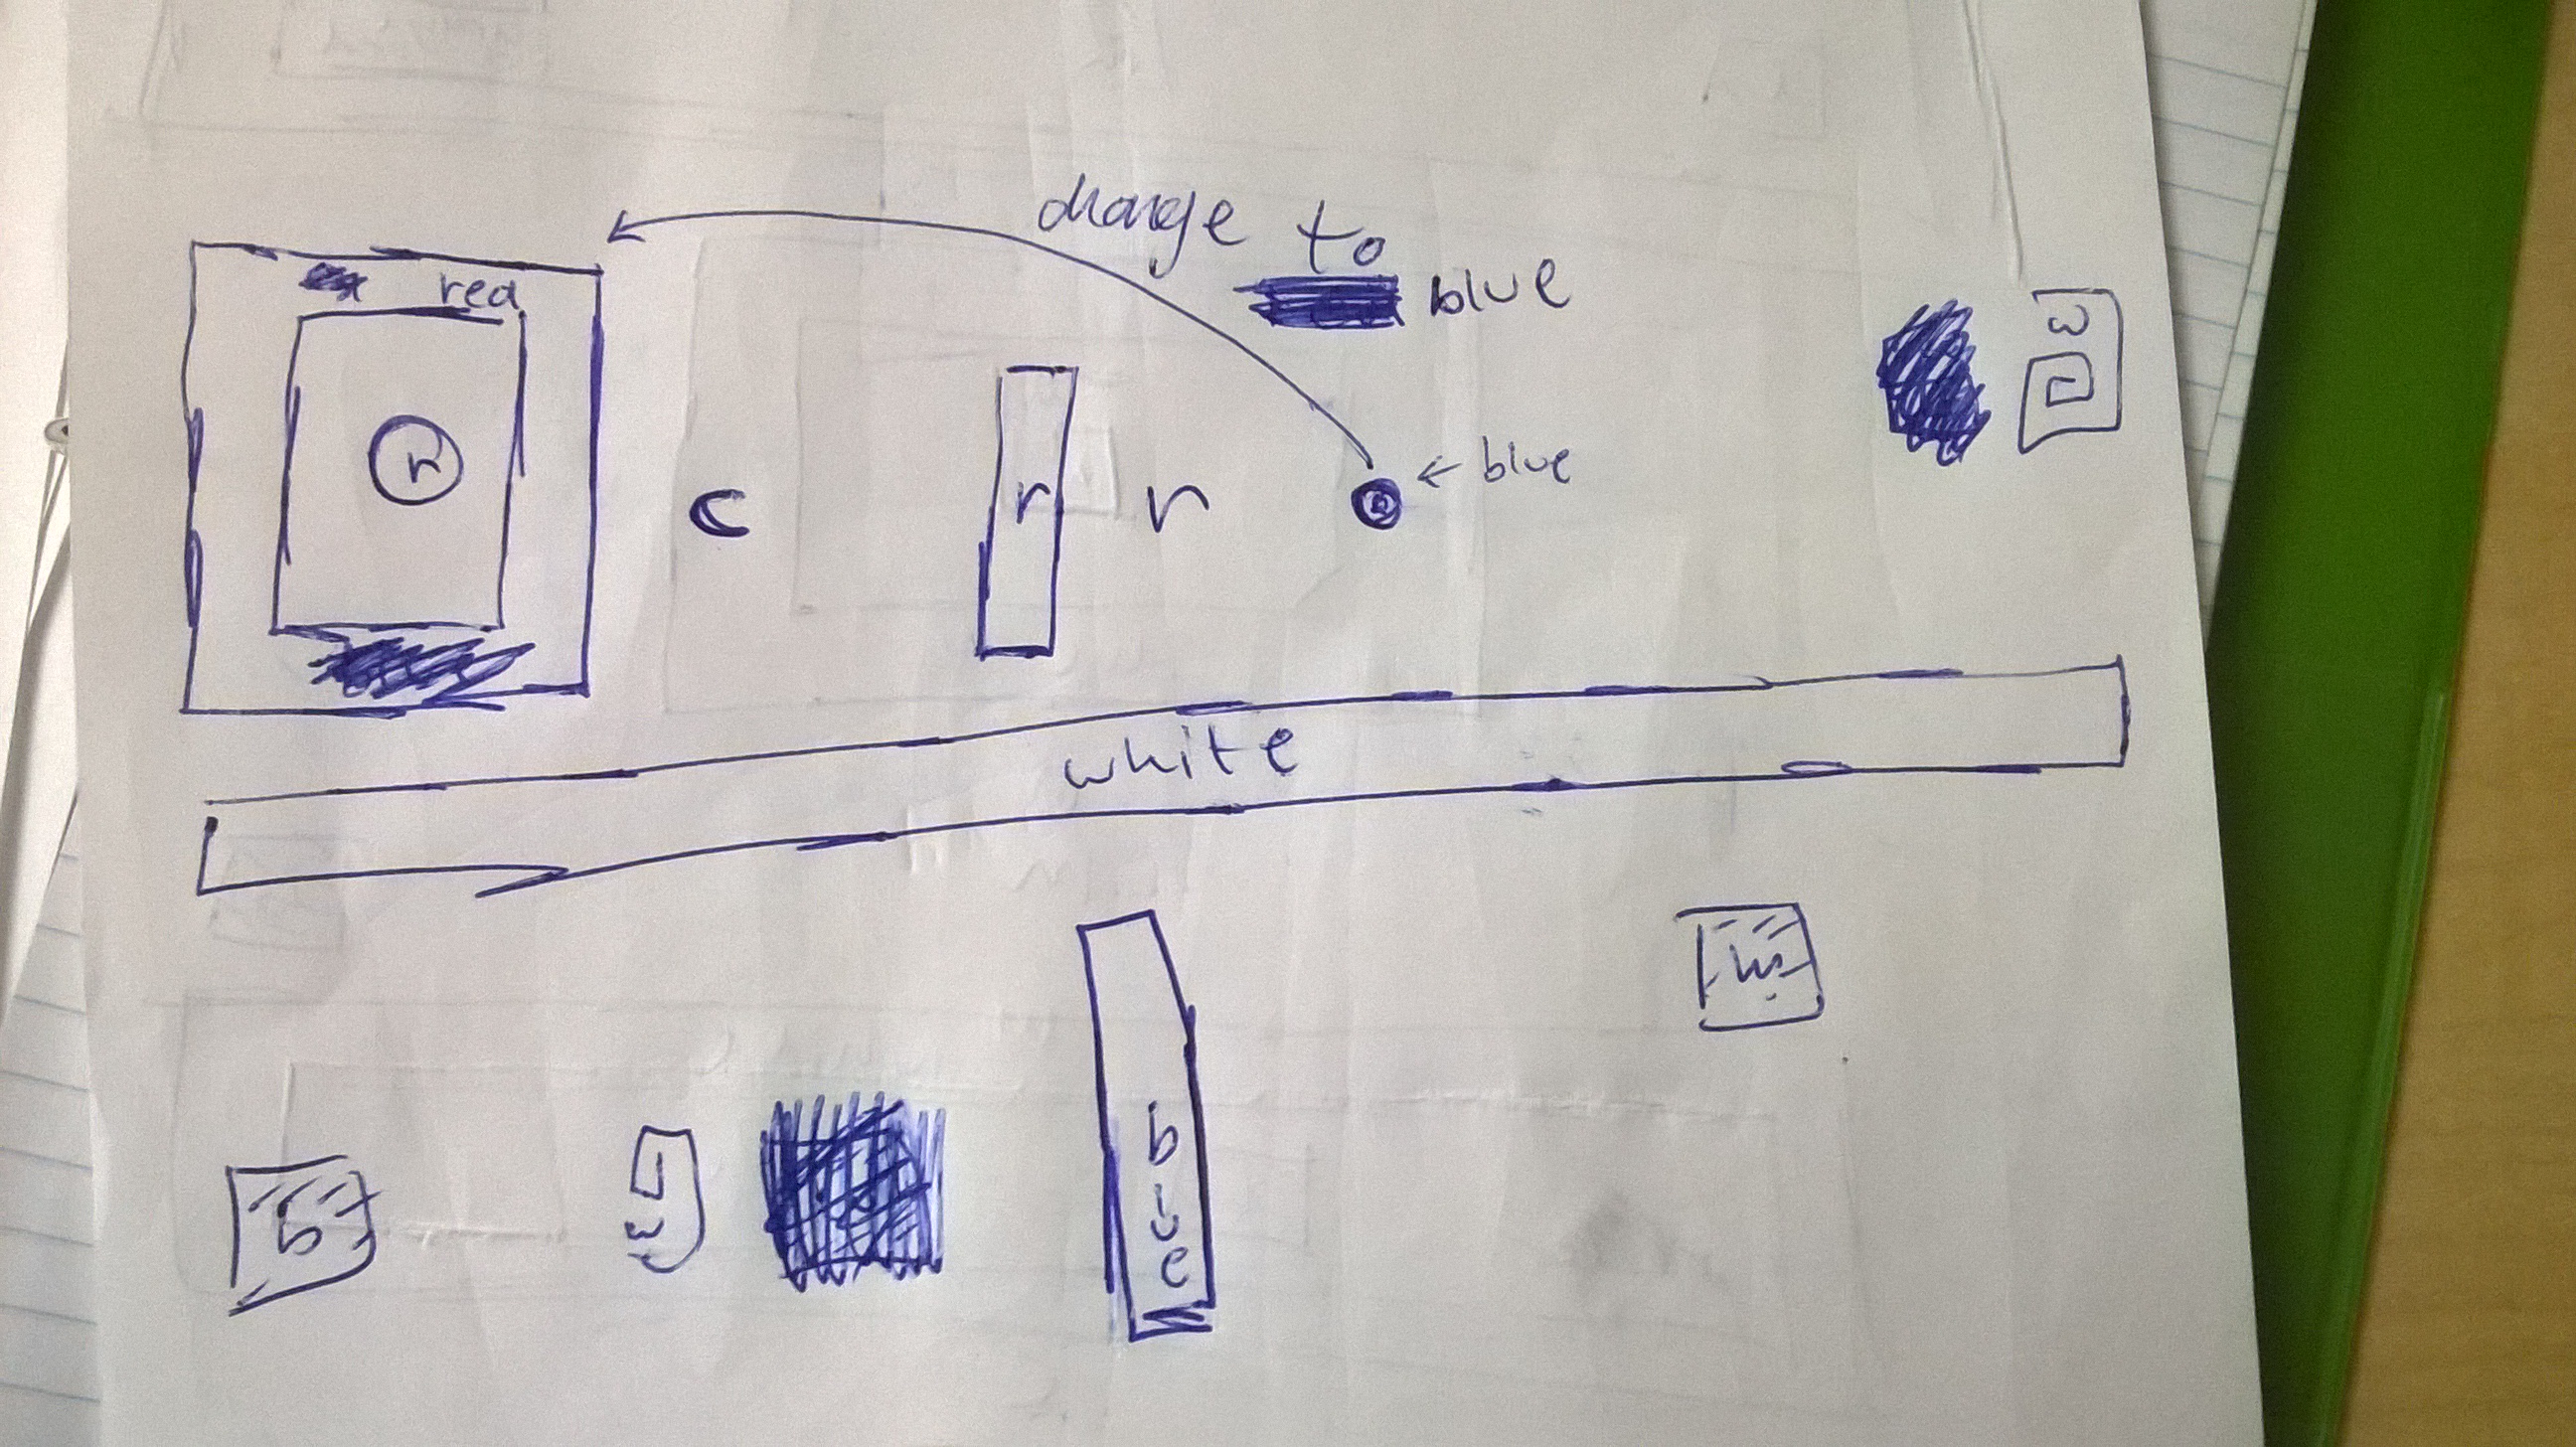 change to
blue
red
w
r
blue
c
r
r
white
b
w
blue